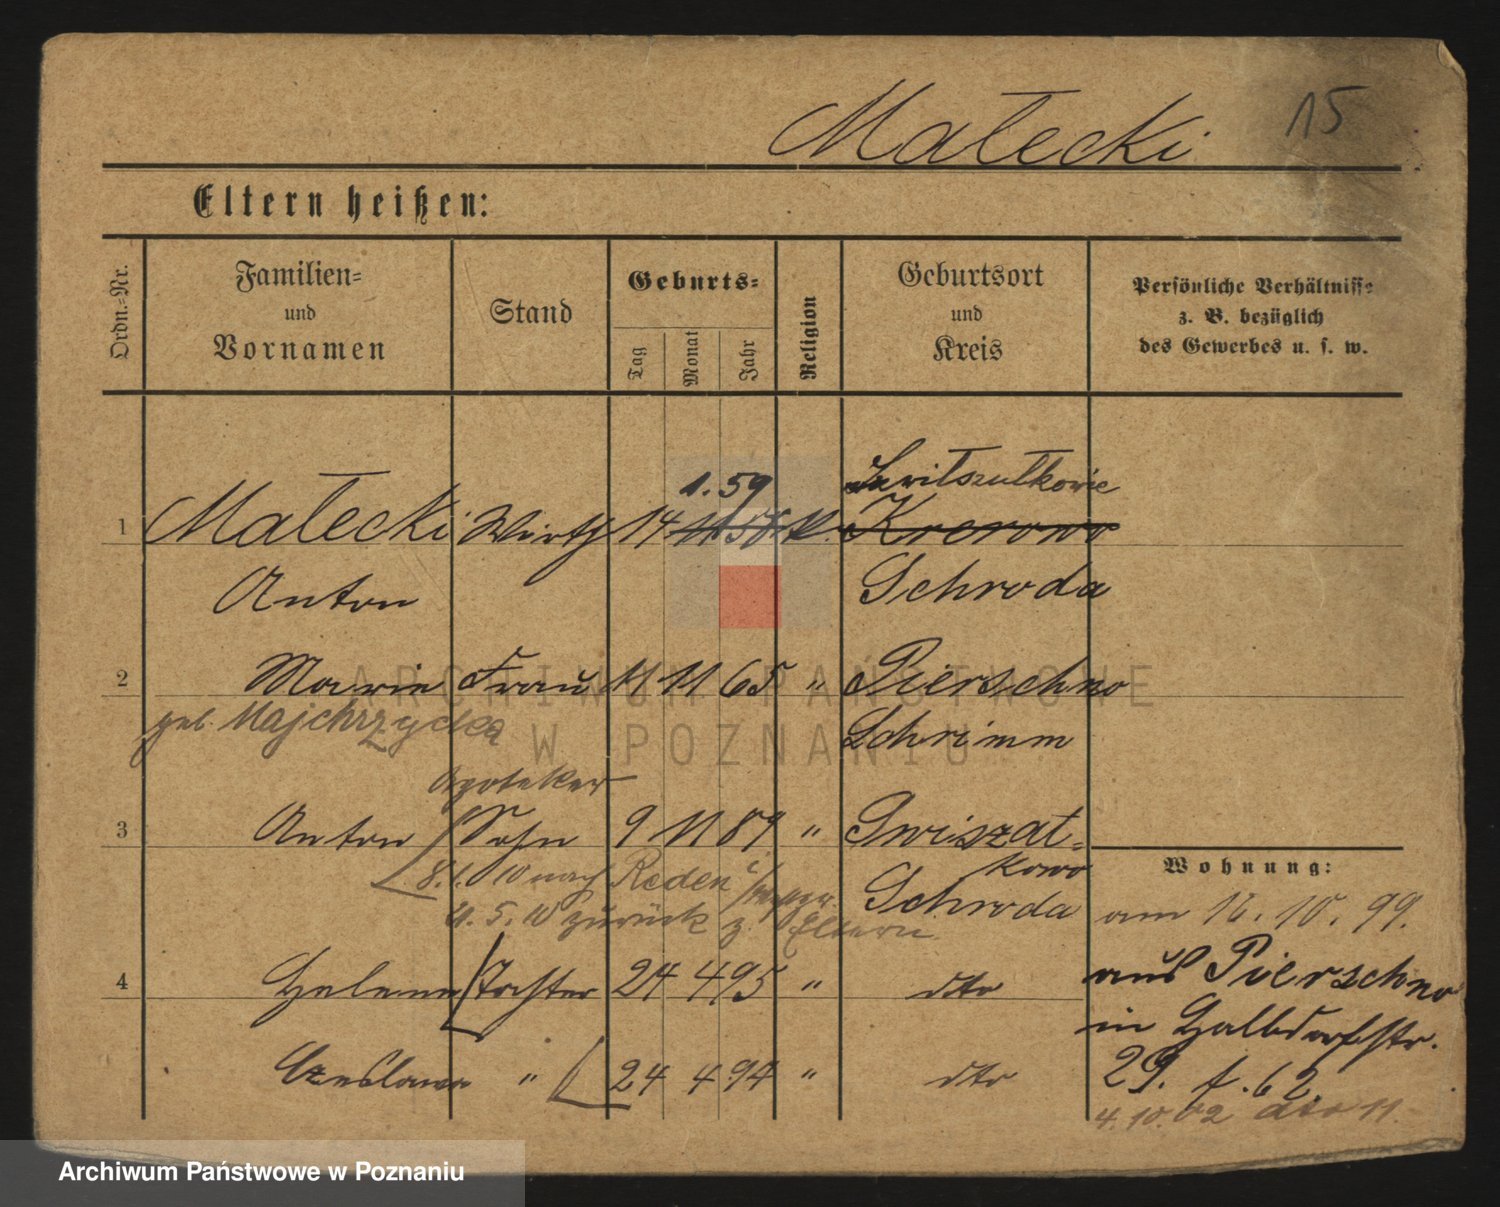 Małecki 15
Eltern heißen:
Ordn.=Nr.
Familien=
und
Vornamen
Stand
Geburts=
Tag
Monat
Jahr
Religion
Geburtsort
und
Kreis
Persönliche Verhältnisse
z. B. bezüglich
des Gewerbes u. s. w.
1. 59
1 Małecki Wirth 14 11 58 k. Krerowo
Anton Schroda
2 Marie Frau 11 11 65 " Pierschno
geb. Majchrzycka Schrimm
Apoteker
3 Anton Sohn 9 11 89 " Gwiszat=
kowo
8. 1. 10 nach Reden
Schroda
5. 10 zurück z. Eltern.
4 Helene Tochter 24 4 95 " dto
Czeslawa " 24 4 94 " dto
Wohnung:
am 12. 10. 99.
aus Pierschno
in Halbdorfstr.
29. f. 62
4. 10. 02 dto 11.
ARCHIWUM PAŃSTWOWE
W POZNANIU
Archiwum Państwowe w Poznaniu